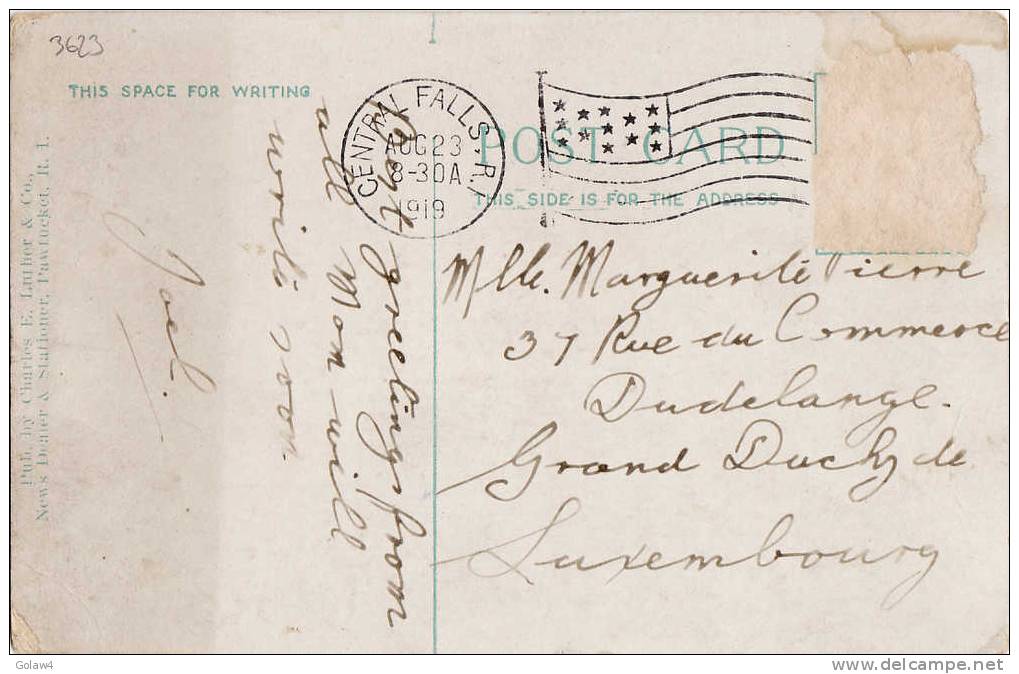 3623
THIS SPACE FOR WRITING
CENTRAL FALLS, R.I.
AUG 23
8-30A
1919
POST CARD
THIS SIDE IS FOR THE ADDRESS
Pub. by Charles E. Luther & Co.,
News Dealer & Stationer, Pawtucket, R. I.
Best greetings from
all Mon will
write soon
Joel.
Mlle. Marguerite Pierre
37 Rue du Commerce
Dudelange.
Grand Duchy de
Luxembourg
Golaw4
www.delcampe.net